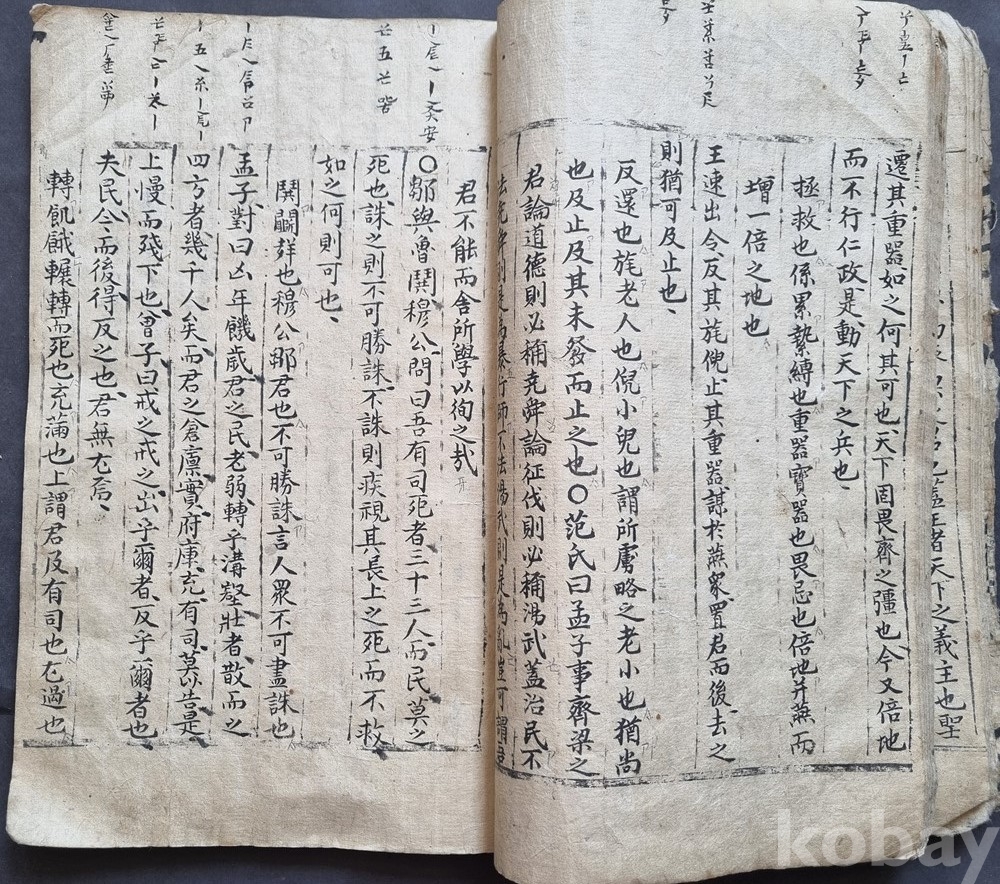 蓋王者天下之義主也聖
遷其重器如之何其可也天下固畏齊之彊也今又倍地
而不行仁政是動天下之兵也、
拯救也係累縶縛也重器寶器也畏忌也倍地并燕而
增一倍之地也
王速出令反其旄倪止其重器謀於燕衆置君而後去之
則猶可及止也、
反還也旄老人也倪小兒也謂所虜略之老小也猶尚
也及止及其未發而止之也○范氏曰孟子事齊梁之
君論道德則必稱堯舜論征伐則必稱湯武蓋治民不
法堯舜則是爲暴行師不法湯武則是爲亂豈可謂吾
君不能而舍所學以徇之哉
○鄒與魯鬨穆公問曰吾有司死者三十三人而民莫之
死也誅之則不可勝誅不誅則疾視其長上之死而不救
如之何則可也、
鬨鬭聲也穆公鄒君也不可勝誅言人衆不可盡誅也
孟子對曰凶年饑歲君之民老弱轉乎溝壑壯者散而之
四方者幾千人矣而君之倉廩實府庫充有司莫以告是
上慢而殘下也曾子曰戒之戒之出乎爾者反乎爾者也
夫民今而後得反之也君無尤焉、
轉飢餓輾轉而死也充滿也上謂君及有司也尤過也
kobay